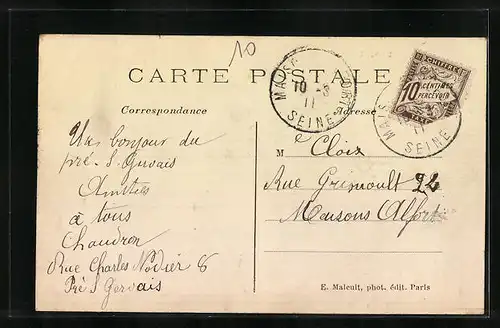 10
CARTE POSTALE
Correspondance
Adresse
10 -8
11
SEINE
A CHIFFRE
10 CENTIMES
A
PERCEVOIR
11
SEINE
Un bonjour du
pré - S. Gervais
Amitiés
à tous
Chaudron
Rue Charles Nodier 6
Pré S Gervais
M e Cloix
Rue Grimoult 24
Maisons Alfort
E. Malcuit, phot. édit. Paris